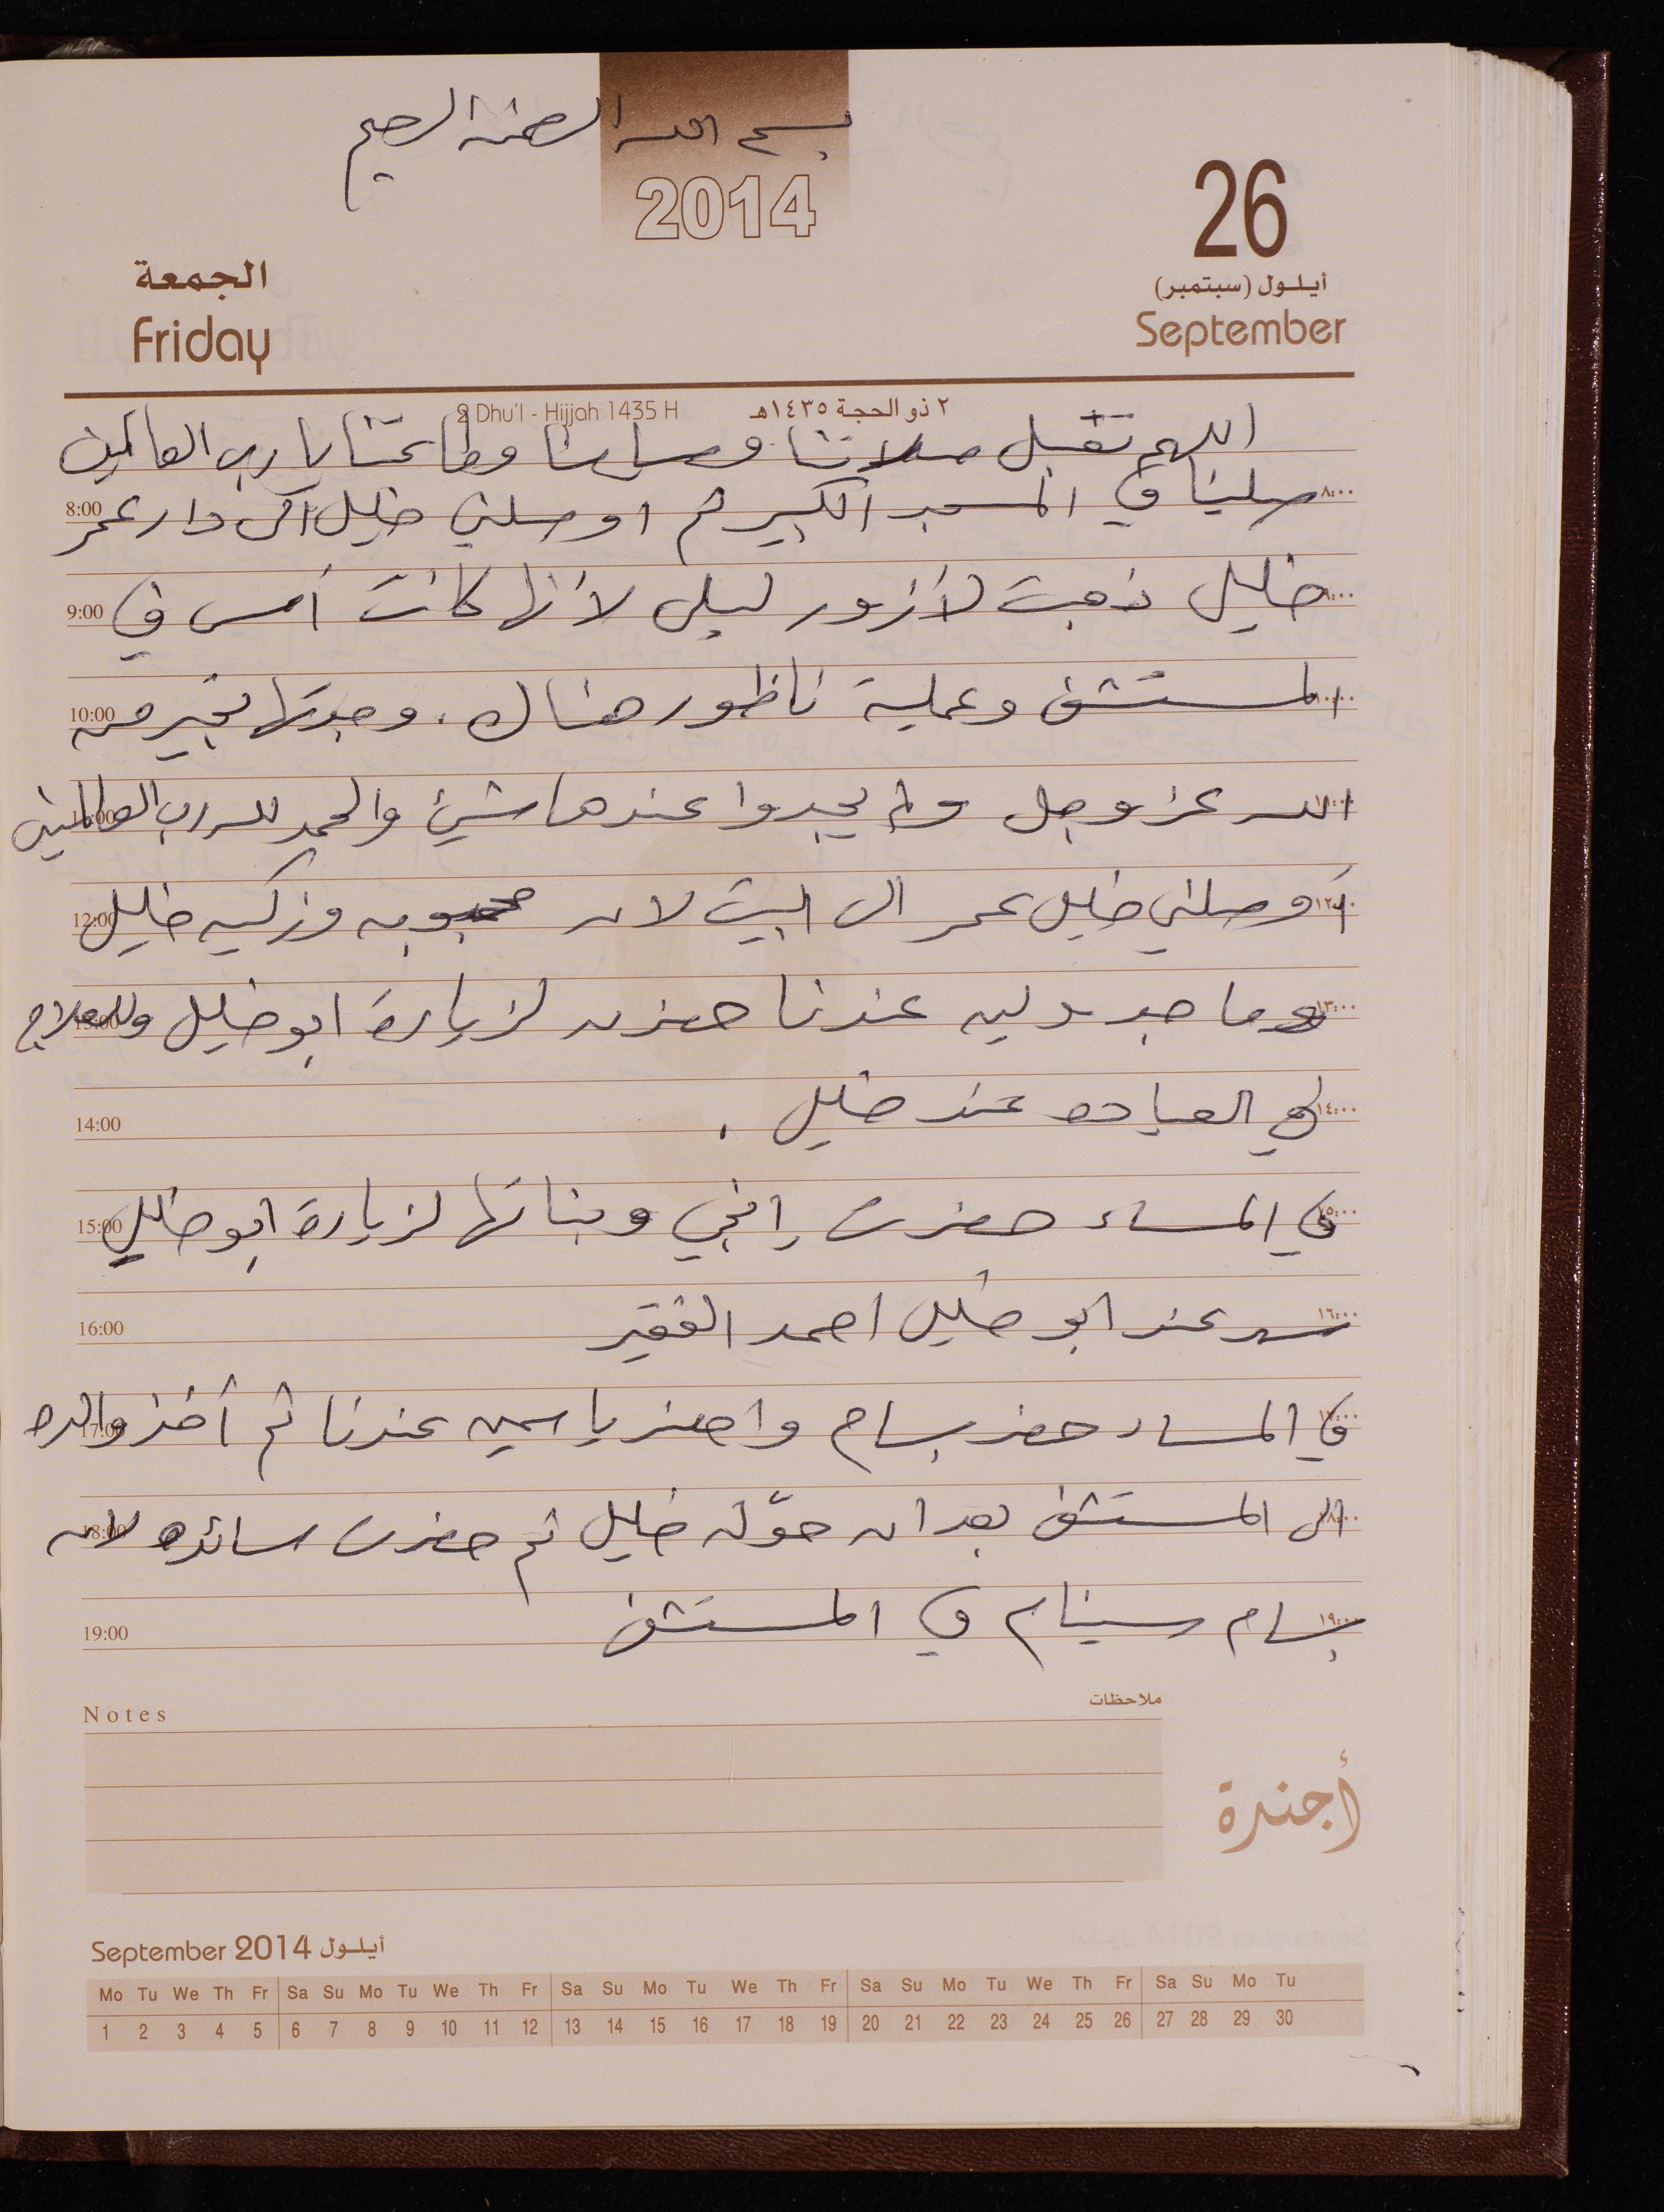 بسم الله الرحمن الرحيم
2014
26
أيلول (سبتمبر)
September
الجمعة
Friday
2 Dhu'l - Hijjah 1435 H
٢ ذو الحجة ١٤٣٥هـ
اللهم تقبل صلاتنا وصيامنا وطاعتنا يا رب العالمين
8:00 ٨:٠٠
صلينا في المسجد الكبير ثم اوصلني خليل الى دار عمر
9:00 ٩:٠٠
خليل ذهبت لأزور ليلى لأنها كانت أمس في
10:00 ١٠:٠٠
المستشفى وعملية ناظور هناك. وجدتها بخير من
11:00 ١١:٠٠
الله عز وجل ولم يجدوا عندها شيئ والحمد لله رب العالمين
12:00 ١٢:٠٠
أوصلني خليل عمر الى البيت لان محبوبه وزكيه خليل
13:00 ١٣:٠٠
وماجدوليه عندنا حضرن لزيارة ابو خليل وللعلاج
14:00 ١٤:٠٠
في العياده عند خليل.
15:00 ١٥:٠٠
في المساء حضرت إنجي وبناتها لزيارة ابو خليل
16:00 ١٦:٠٠
سهر عند ابو خليل احمد الفقير
17:00 ١٧:٠٠
في المساء حضر بسام واحضر ياسمين عندنا ثم أخذ والده
18:00 ١٨:٠٠
الى المستشفى بعد ان حوّله خليل ثم حضرت سائده لان
19:00 ١٩:٠٠
بسام سينام في المستشفى
Notes ملاحظات
أجندة
September 2014 أيلول
Mo Tu We Th Fr Sa Su Mo Tu We Th Fr Sa Su Mo Tu We Th Fr Sa Su Mo Tu We Th Fr Sa Su Mo Tu
1 2 3 4 5 6 7 8 9 10 11 12 13 14 15 16 17 18 19 20 21 22 23 24 25 26 27 28 29 30